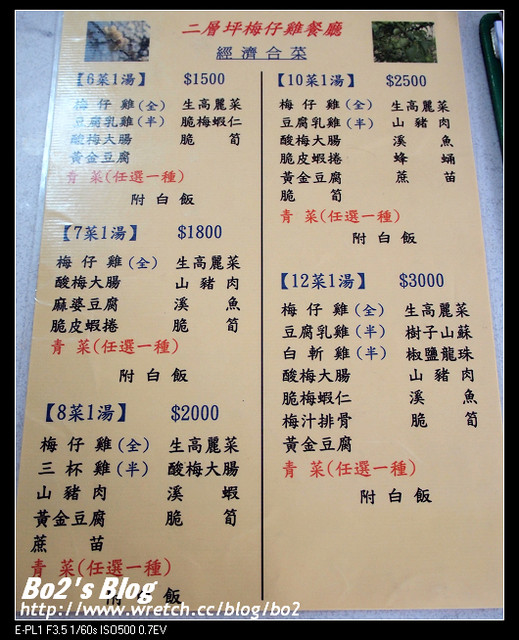 二層坪梅仔雞餐廳
經濟合菜
【6菜1湯】 $1500
梅仔雞(全) 生高麗菜
豆腐乳雞(半) 脆梅蝦仁
酸梅大腸 脆筍
黃金豆腐
青菜(任選一種)
附白飯
【7菜1湯】 $1800
梅仔雞(全) 生高麗菜
酸梅大腸 山豬肉
麻婆豆腐 溪魚
脆皮蝦捲 脆筍
青菜(任選一種)
附白飯
【8菜1湯】 $2000
梅仔雞(全) 生高麗菜
三杯雞(半) 酸梅大腸
山豬肉 溪蝦
黃金豆腐 脆筍
蔗苗
青菜(任選一種)
附白飯
【10菜1湯】 $2500
梅仔雞(全) 生高麗菜
豆腐乳雞(半) 山豬肉
酸梅大腸 溪魚
脆皮蝦捲 蜂蛹
黃金豆腐 蔗苗
脆筍
青菜(任選一種)
附白飯
【12菜1湯】 $3000
梅仔雞(全) 生高麗菜
豆腐乳雞(半) 樹子山蘇
白斬雞(半) 椒鹽龍珠
酸梅大腸 山豬肉
脆梅蝦仁 溪魚
梅汁排骨 脆筍
黃金豆腐
青菜(任選一種)
附白飯
Bo2's Blog
http://www.wretch.cc/blog/bo2
E-PL1 F3.5 1/60s ISO500 0.7EV